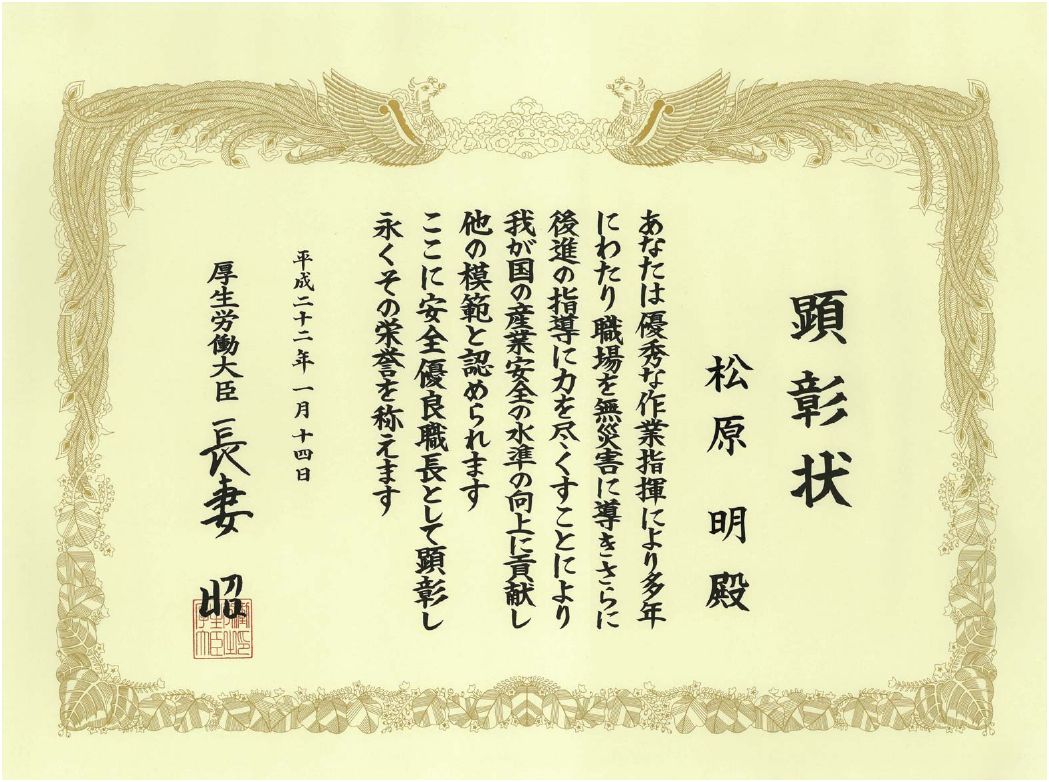 顕彰状
松原 明 殿
あなたは優秀な作業指揮により多年
にわたり職場を無災害に導きさらに
後進の指導に力を尽くすことにより
我が国の産業安全の水準の向上に貢献し
他の模範と認められます
ここに安全優良職長として顕彰し
永くその栄誉を称えます
平成二十二年一月十四日
厚生労働大臣 長妻 昭